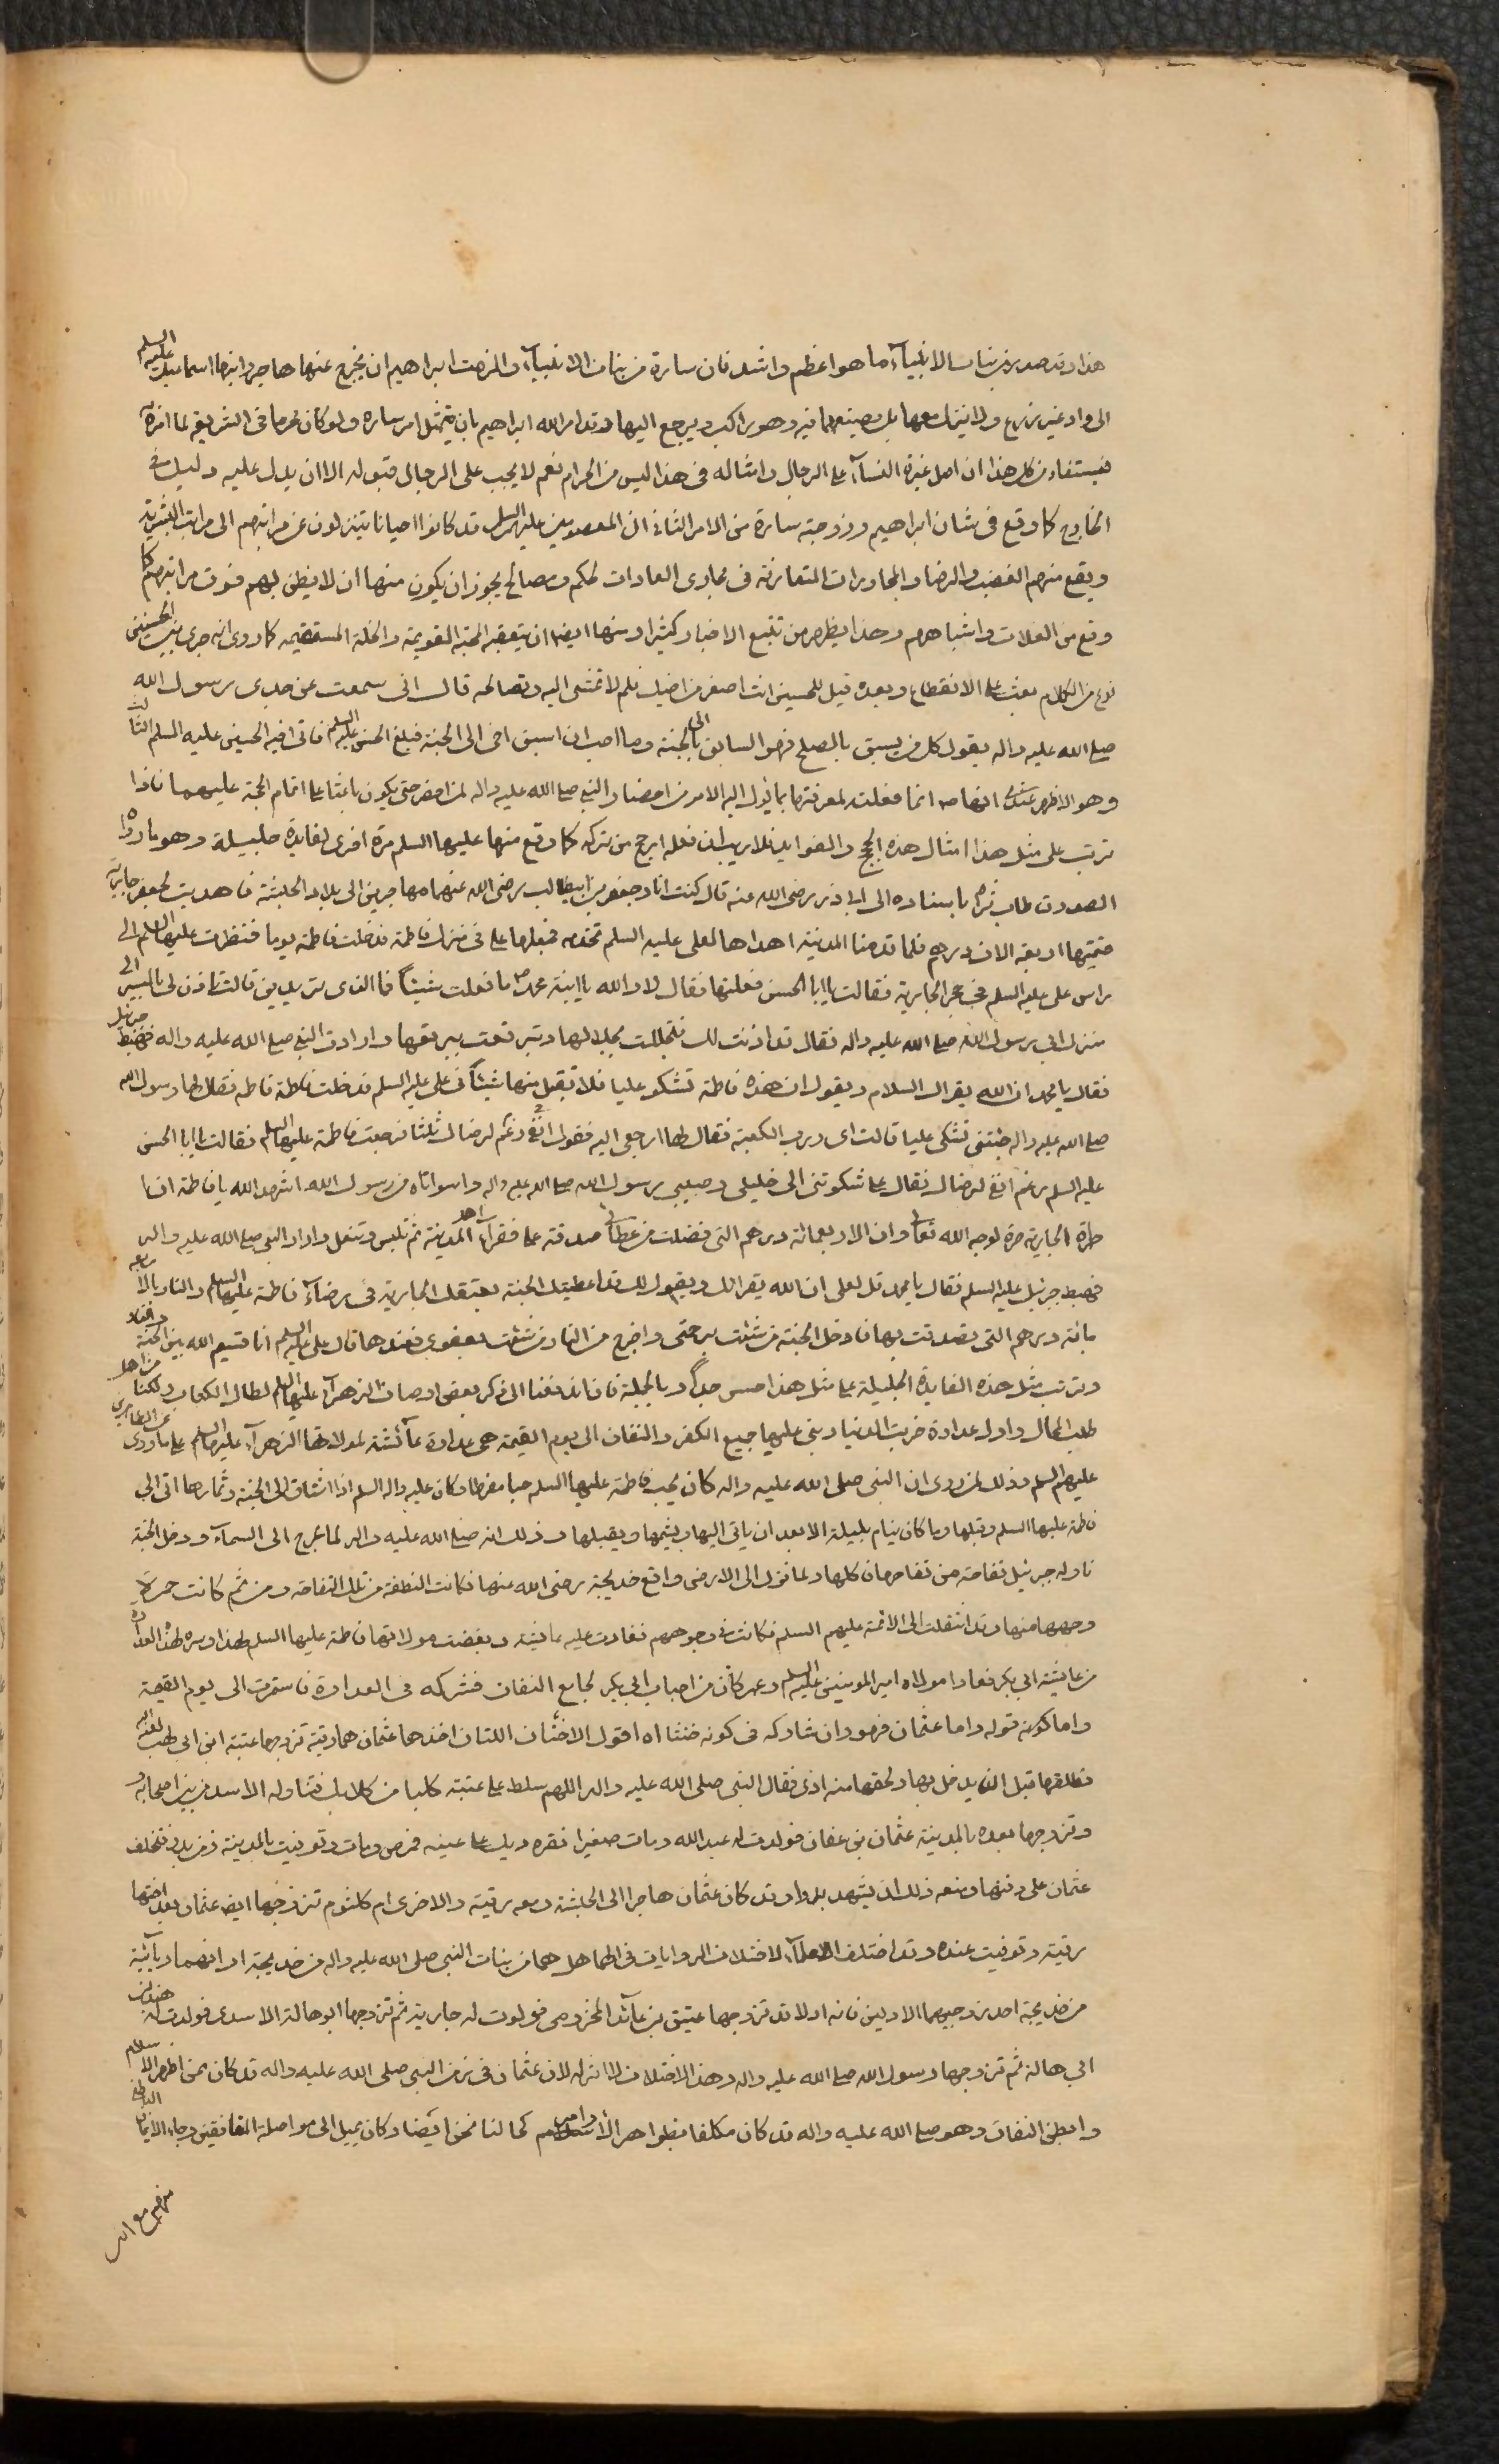 هذا وقد صدر من بنات الانبيآء ما هو اعظم واشد فان سارة من بنات الانبيآء والزمت ابراهيم ان يخرج عنها هاجر وابنها اسماعيل عليه السلم
الى واد غير ذي زرع ولا ينزل معها بل يضيعهما فيه وهو راكب ويرجع اليها وقد امر الله ابراهيم بان يمتثل امر ساره ولو كان محرما في الشريعة لما اقره
فيستفاد من كل هذا ان اصل غيرة النسآء على الرجال وامثاله في هذا ليس من الحرام نعم لا يجب على الرجال قبوله الا ان يدل عليه دليل من
الخارج كما وقع في شان ابراهيم وزوجته سارة من الامر الثاني ان المعصومين عليهم السلم قد كانوا احيانا يتنزلون عن مراتبهم الى مراتب البشرية
ويقع منهم الغضب والرضا والمحاورات المتعارفة في مجاري العادات لحكم ومصالح يجوز ان يكون منها ان لا يظن بهم فوق مراتبهم كما
وقع من الغلات واشباههم وهذا يظهر من تتبع الاخبار كثيرا ومنها ايضا ان يتعقبه المحبة القويمة والخلة المستقيمه كما روى انه جرى بين الحسنين
نوع من الكلام بعث على الانقطاع وبعده قيل للحسين انت اصغر من اخيك فلم لا تمشى اليه وتصالحه قال انى سمعت عن جدى رسول الله
صلى الله عليه واله يقول كل من يسبق بالصلح فهو السابق الى الجنة وما احب ان اسبق اخى الى الجنة فبلغ الحسن عليه السلم فاتى اخيه الحسين عليه السلم الثالث
وهو الاظهر عندى انها ع انما فعلت لمعرفتها بما يؤل اليه الامر من اخبار النبي صلى الله عليه واله حتى يكون باعثا على اتمام الحجة عليهما فاذا
ترتب على مثل هذا امثال هذه الحجج والفوايد فلا ريب ان فعله ارجح من تركه كما وقع منها عليها السلم مرة اخرى لفايدة جليلة وهو ما رواه
الصدوق طاب ثراه باسناده الى ابى ذر رضى الله عنه قال كنت انا وجعفر بن ابيطالب رضى الله عنهما مهاجرين الى بلاد الحبشة فاهديت لجعفر جارية
قيمتها اربعة الاف درهم فلما قدمنا المدينة اهداها لعلى عليه السلم تخدمه فجعلها على في منزل فاطمة فدخلت فاطمة يوما فنظرت عليها السلم الى
راس على عليه السلم في حجر الجارية فقالت يا ابا الحسن فعلتها فقال لا والله يا ابنة محمد ما فعلت شيئا فما الذى تريدين قالت تاذن لى بالمسير الى
منزل ابى رسول الله صلى الله عليه واله فقال قد اذنت لك فتجللت بجلالها وتبرقعت ببرقعها وارادت النبي صلى الله عليه واله فهبط جبرئيل
فقال يا محمد ان الله يقرؤك السلام ويقول ان هذه فاطمة تشكو عليا فلا تقبل منها شيئا في على عليه السلم فدخلت فاطمة فاطمه فقال لها رسول الله
صلى الله عليه واله جئتنى تشكى عليا قالت اى ورب الكعبة فقال لها ارجعى اليه فقولى له رغم انفى لرضاك ثلثا فرجعت فاطمة عليها السلم فقالت يا ابا الحسن
عليه السلم رغم انفى لرضاك فقال على شكوتنى الى خليلى وحبيبى رسول الله صلى الله عليه واله واسواتاه من رسول الله اشهد الله يا فاطمة ان
الجارية حرة لوجه الله تعالى وان الاربعمائة درهم التى فضلت من عطائى صدقة على فقرآء اهل المدينة ثم تلبس وتنعل واراد النبي صلى الله عليه واله
فهبط جبرئيل عليه السلم فقال يا محمد قل لعلى ان الله يقرؤك ويقول لك قد اعطيتك الجنة بعتقك الجارية في رضآء فاطمة عليها السلم والنار بالاربعه
مائة درهم التى تصدقت بها فادخل الجنة من شئت برحمتى واخرج من النار من شئت بعفوى فعندها قال على عليه السلم انا قسيم الله بين الجنة والنار
وترتب مثل هذه الفايدة الجليلة على مثل هذا حسن جدا وبالجملة فان ذكر بعض اوصاف الزهرآء عليها السلم لطال الكتاب ولكنا من اهل
طلب المحال واول عداوة خربت الدنيا وبنى عليها جميع الكفر والنفاق الى يوم القيمة هى عداوة عآئشة لمولاتها الزهرآء عليها السلم على ما روى عن الطاهرين
عليهم السلم وذلك لما روى ان النبى صلى الله عليه واله كان يحب فاطمة عليها السلم حبا مفرطا وكان عليه واله السلم اذا اشتاق الى الجنة وثمارها اتى الى
فاطمة عليها السلم وقبلها وما كان ينام بليلة الا بعد ان ياتى اليها ويشمها ويقبلها وذلك انه صلى الله عليه واله لما عرج الى السمآء ودخل الجنة
ناوله جبرئيل تفاحة من تفاحها فاكلها ولما نزل الى الارض واقع خديجة رضى الله عنها فكانت النطفة من تلك التفاحة ومن ثم كانت حمرة
وجهها منها وقد انتقلت الى الائمة عليهم السلم فكانت في وجوههم فغارت عليه عائشة وبغضت مولاتها فاطمة عليها السلم لهذا وسرت هذه العداوة
من عايشة الى ابى بكر فعادا مولاه امير المومنين عليه السلم وعمر كان من احباب ابى بكر لجامع النفاق فشركه في العداوة فاستمرت الى يوم القيمة
واما كونه قوله واما عثمان فهو وان شاركه في كونه ختنا اه اقول الاختان اللتان اخذهما عثمان هما رقية تزوجها عتبة ابن ابى لهب
فطلقها قبل ان يدخل بها ولحقها منه اذى فقال النبى صلى الله عليه واله اللهم سلط على عتبة كلبا من كلابك فتناوله الاسد من بين اصحابه
وتزوجها بعده بالمدينة عثمان بن عفان فولدت له عبد الله ومات صغيرا نقره ديك على عينه فمرض ومات وتوفيت بالمدينة زمن بدر فتخلف
عثمان على دفنها ومنعه ذلك ان يشهد بدرا وقد كان عثمان هاجرا الى الحبشة ومعه رقية والاخرى ام كلثوم تزوجها ايضا عثمان بعد اختها
رقية وتوفيت عنده وقد اختلف العلمآء لاختلاف الروايات في انهما هل هما من بنات النبي صلى الله عليه واله من خديجة او انهما ربآئبه
من خديجة احد زوجيهما الاولين فانه اولا قد تزوجها عتيق بن عآئذ المخزومى فولدت له جارية ثم تزوجها ابو هالة الاسدى فولدت له هند بن
ابي هالة ثم تزوجها رسول الله صلى الله عليه واله وهذا الاختلاف لا اثر له لان عثمان في زمن النبى صلى الله عليه واله قد كان ممن اظهر الاسلام
وابطن النفاق وهو صلى الله عليه واله قد كان مكلفا بظواهر الاوامر كحالنا نحن ايضا وكان يميل الى مواصلة المنافقين رجاء الايمان
منهم مع انه